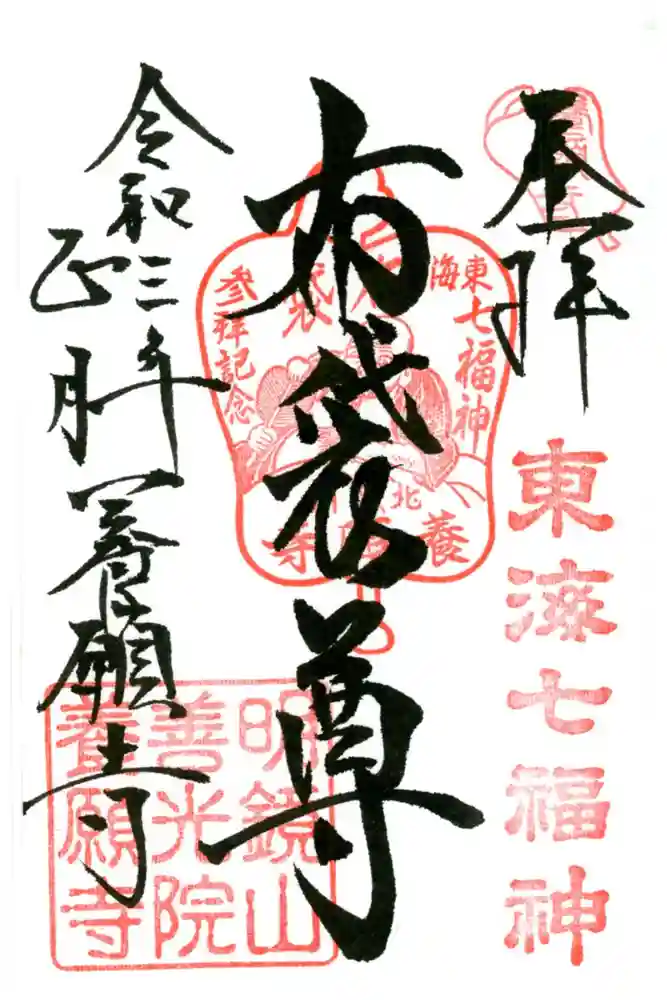 奉拝
東海七福神
布袋尊
東海七福神
布袋
参拝記念
北品川
養願寺
令和三年
正月
養願寺
明鏡山
善光院
養願寺